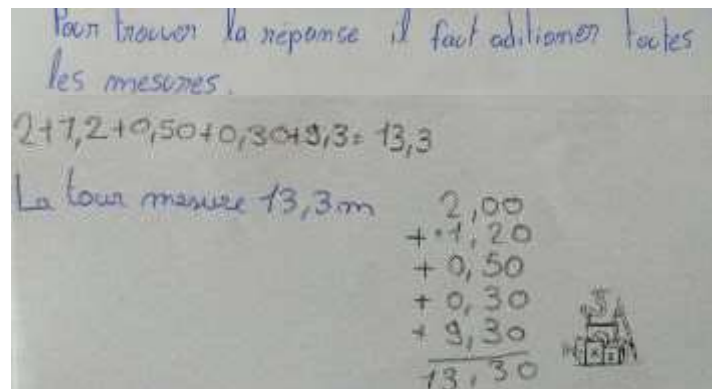 Pour trouver la réponse il faut aditionner toutes
les mesures.
2+1,2+0,50+0,30+9,3= 13,3
La tour mesure 13,3m
2,00
+ 1,20
+ 0,50
+ 0,30
+ 9,30
13,30